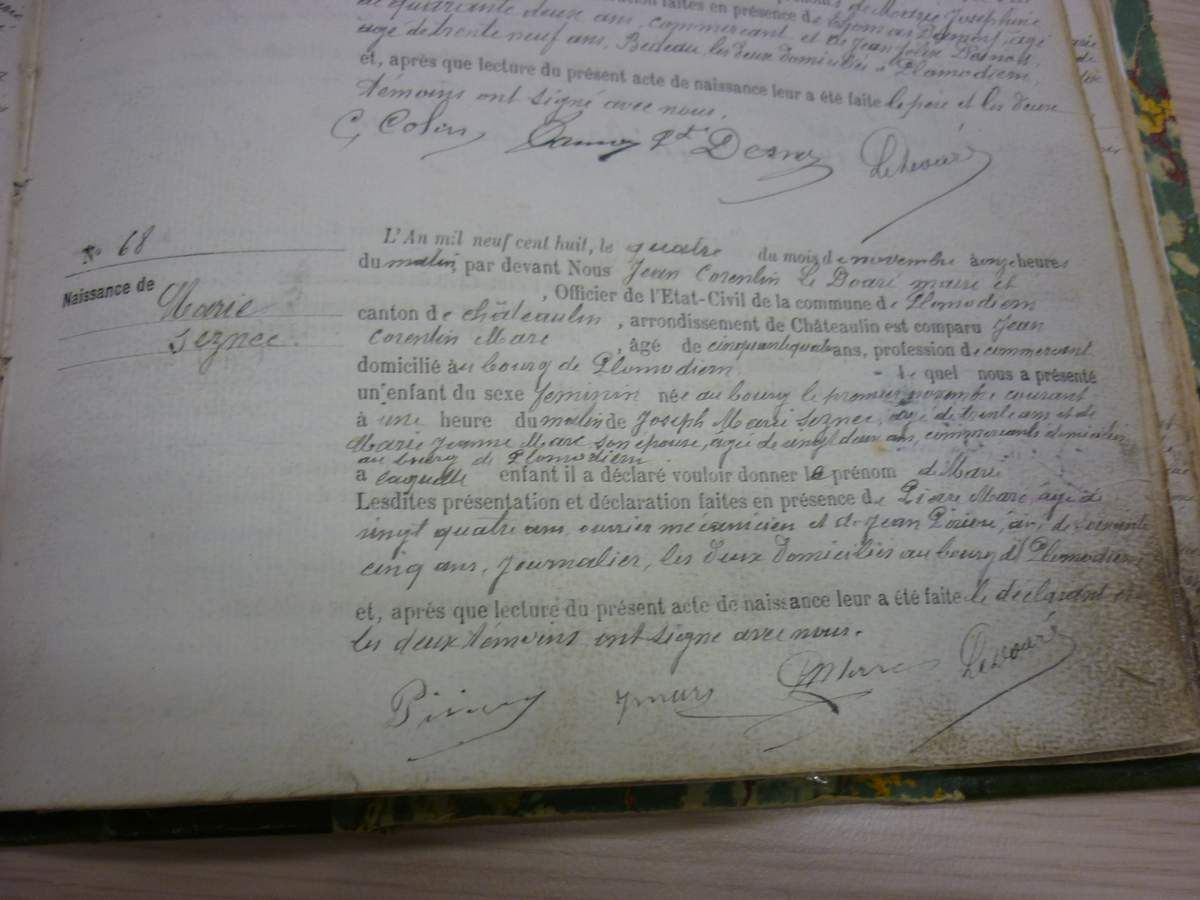 de quarante deux ans, commerçant et de Jean
âgé de trente neuf ans, Bedeau, les deux domiciliés à Plomodiern
et, après que lecture du présent acte de naissance leur a été faite le père et les deux
témoins ont signé avec nous.
C. Colin
Le Doaré
N° 68
Naissance de
Marie
Seznec
L'An mil neuf cent huit, le quatre du mois de novembre à onze heures
du matin, par devant Nous Jean Corentin Le Doaré maire et
, Officier de l'Etat-Civil de la commune de Plomodiern
canton de châteaulin , arrondissement de Châteaulin est comparu Jean
Corentin Marc , âgé de cinquante quatre ans, profession de commerçant
domicilié au bourg de Plomodiern - le quel nous a présenté
un enfant du sexe feminin née au bourg le premier novembre courant
à une heure du matin de Joseph Marie Seznec, âgé de trente ans et de
Marie Jeanne Marc son épouse, agée de vingt deux ans, commerçants domiciliés
au bourg de Plomodiern
a laquelle enfant il a déclaré vouloir donner le prénom de Marie
Lesdites présentation et déclaration faites en présence de Pierre Marc, âgé de
vingt quatre ans, ouvrier mécanicien et de Jean, âgé de soixante
cinq ans, journalier, les deux domiciliés au bourg de Plomodiern
et, après que lecture du présent acte de naissance leur a été faite le déclarant et
les deux témoins ont signé avec nous.
Le Doaré